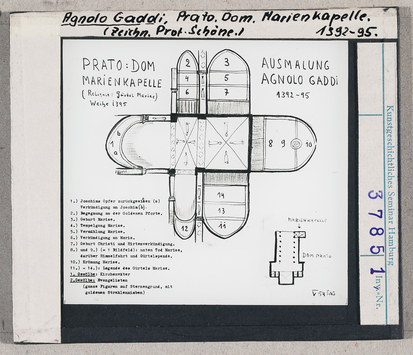 Agnolo Gaddi, Prato, Dom, Marienkapelle.
(Zeichn. Prof. Schöne.) 1392-95.
PRATO: DOM
MARIENKAPELLE
(Reliquie: Gürtel Mariae)
Weihe 1395
AUSMALUNG
AGNOLO GADDI
1392-95
2
4
6
3
5
7
1
a
b
8
9
10
12
14
13
11
1.) Joachims Opfer zurückgewiesen (a)
Verkündigung an Joachim(b)
2.) Begegnung an der Goldenen Pforte.
3.) Geburt Mariae.
4.) Tempelgang Mariae.
5.) Vermählung Mariae.
6.) Verkündigung an Maria.
7.) Geburt Christi und Hirtenverkündigung.
8.) und 9.) (= 1 Bildfeld): unten Tod Mariae,
darüber Himmelfahrt und Gürtelspende.
10.) Krönung Mariae.
11.) - 14.) Legende des Gürtels Mariae.
1. Gewölbe: Kirchenväter
2. Gewölbe: Evangelisten
(ganze Figuren auf Sternengrund, mit
goldenen Strahlennimben)
MARIENKAPELLE
DOM PRATO
Kunstgeschichtliches Seminar Hamburg
37851
Inv.-Nr.